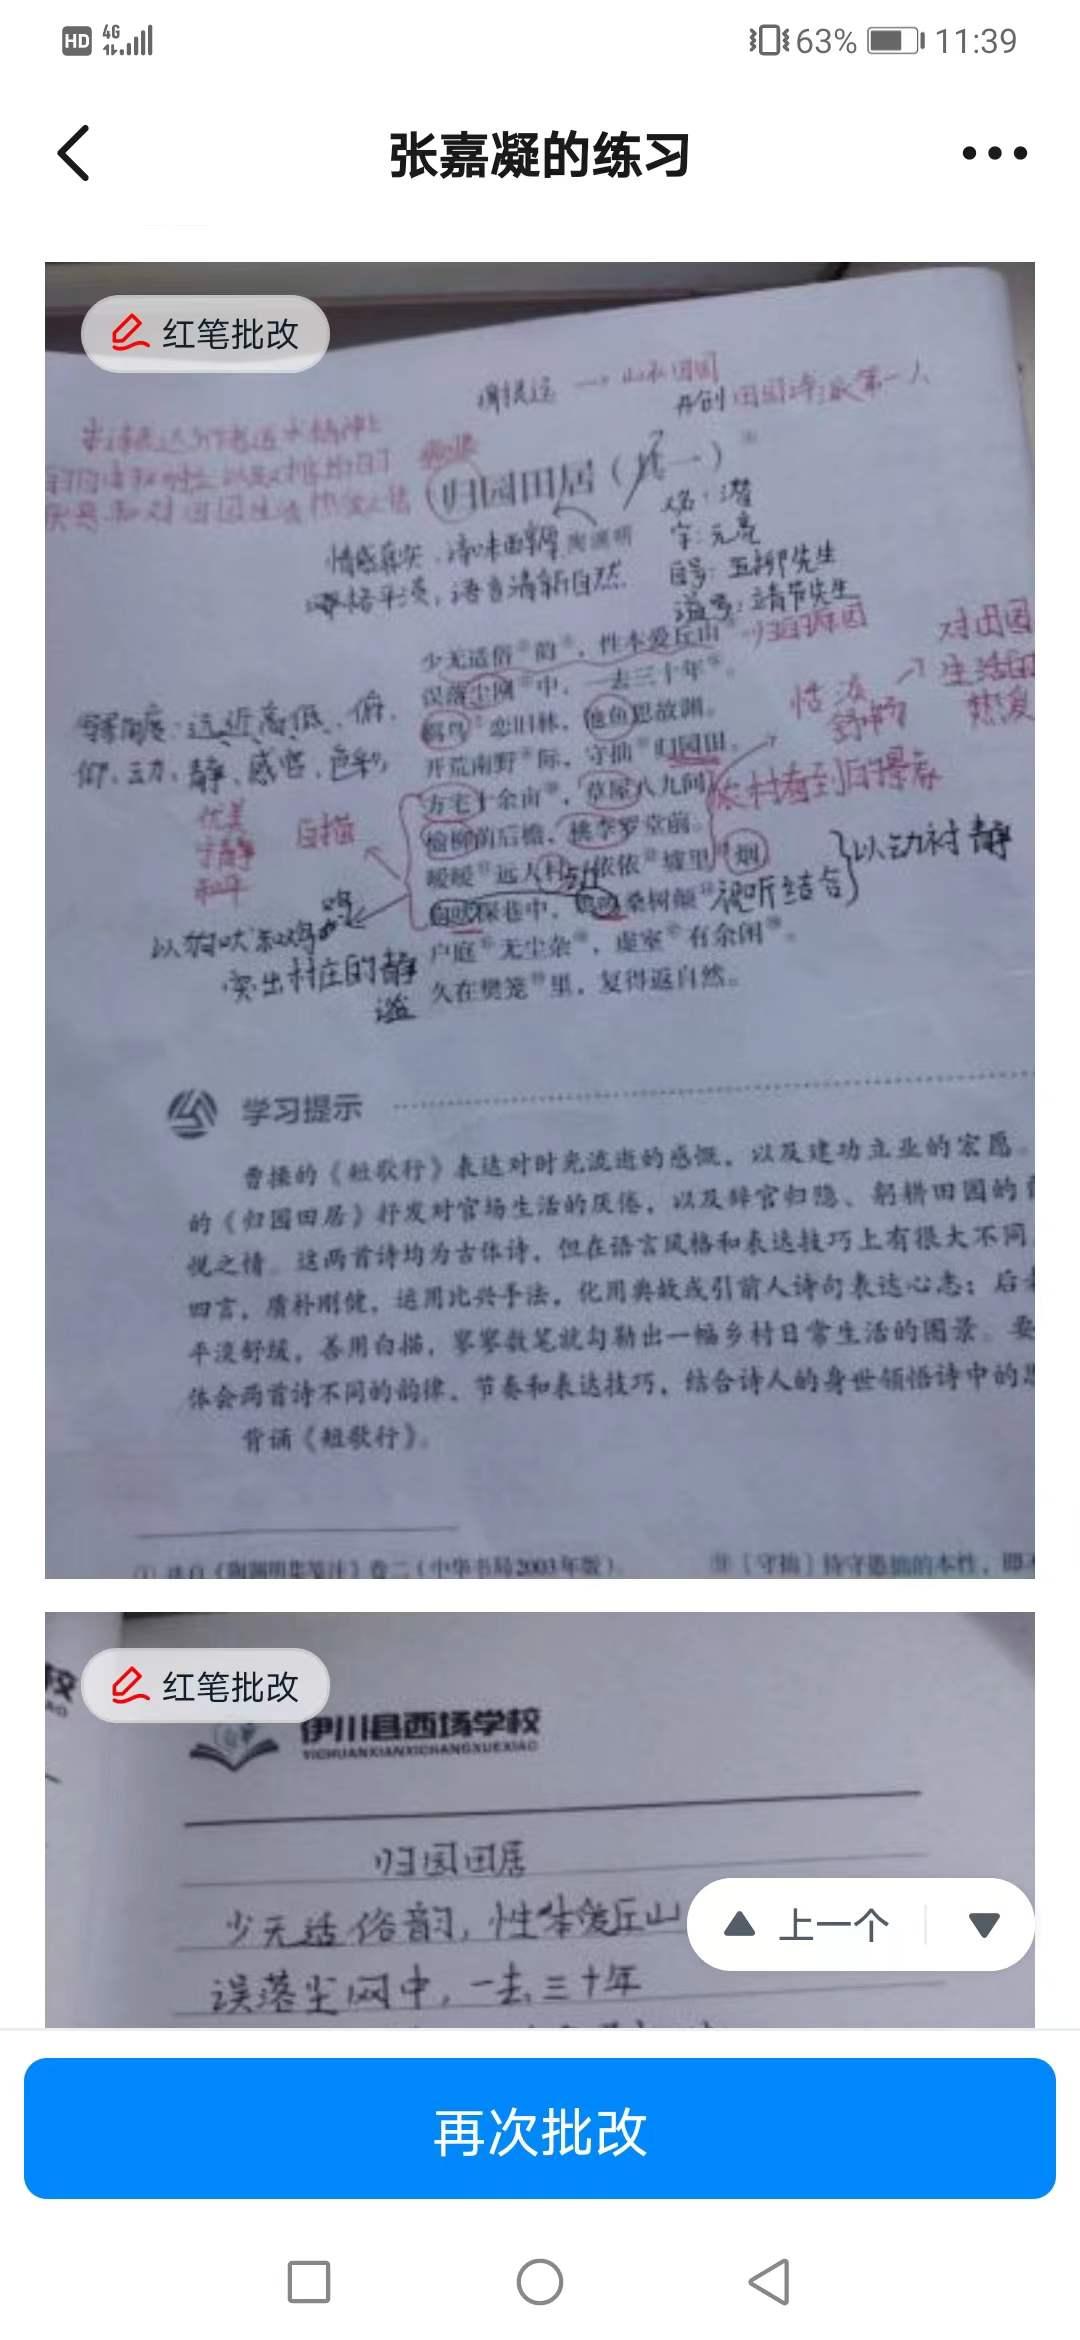 HD 4G 63% 11:39
张嘉凝的练习
红笔批改
谢灵运 → 山水田园
开创田园诗派第一人
归园田居（其一）
名：潜
字：元亮
自号：五柳先生
谥号：靖节先生
情感真实，诗味醇厚
陶渊明
风格平淡，语言清新自然
少无适俗韵，性本爱丘山
归园原因
对田园
生活的
热爱
误落尘网中，一去三十年。
羁鸟恋旧林，池鱼思故渊。
远近高低、俯、
仰、动、静、感官、色彩
开荒南野际，守拙归园田。
方宅十余亩，草屋八九间
农村看到的景春
优美
宁静
和平
白描
榆柳荫后檐，桃李罗堂前。
暧暧远人村，依依墟里烟
狗吠深巷中，鸡鸣桑树颠
视听结合
以动衬静
以狗吠和鸡鸣
突出村庄的静
谧
户庭无尘杂，虚室有余闲。
久在樊笼里，复得返自然。
学习提示
曹操的《短歌行》表达对时光流逝的感慨，以及建功立业的宏愿。
的《归园田居》抒发对官场生活的厌倦，以及辞官归隐、躬耕田园的
悦之情。这两首诗均为古体诗，但在语言风格和表达技巧上有很大不同
四言，质朴刚健，运用比兴手法，化用典故或引前人诗句表达心志；后
平淡舒缓，善用白描，寥寥数笔就勾勒出一幅乡村日常生活的图景。要
体会两首诗不同的韵律、节奏和表达技巧，结合诗人的身世领悟诗中的
背诵《短歌行》。
① 选自《陶渊明集笺注》卷二（中华书局2003年版）
〔守拙〕持守愚拙的本性，即
红笔批改
伊川县西场学校
YICHUANXIANXICHANGXUEXIAO
归园田居
少无适俗韵，性本爱丘山
误落尘网中，一去三十年
上一个
再次批改